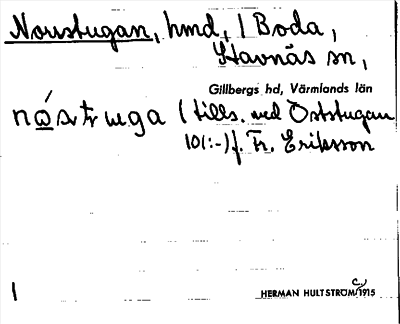 Norstugan, hmd, i Boda,
Stavnäs sn,
Gillbergs hd, Värmlands län
nó̱stwga (tills. med Öststugan
10(:-) f. Fr. Eriksson
1
HERMAN HULTSTRÖM c. 1915